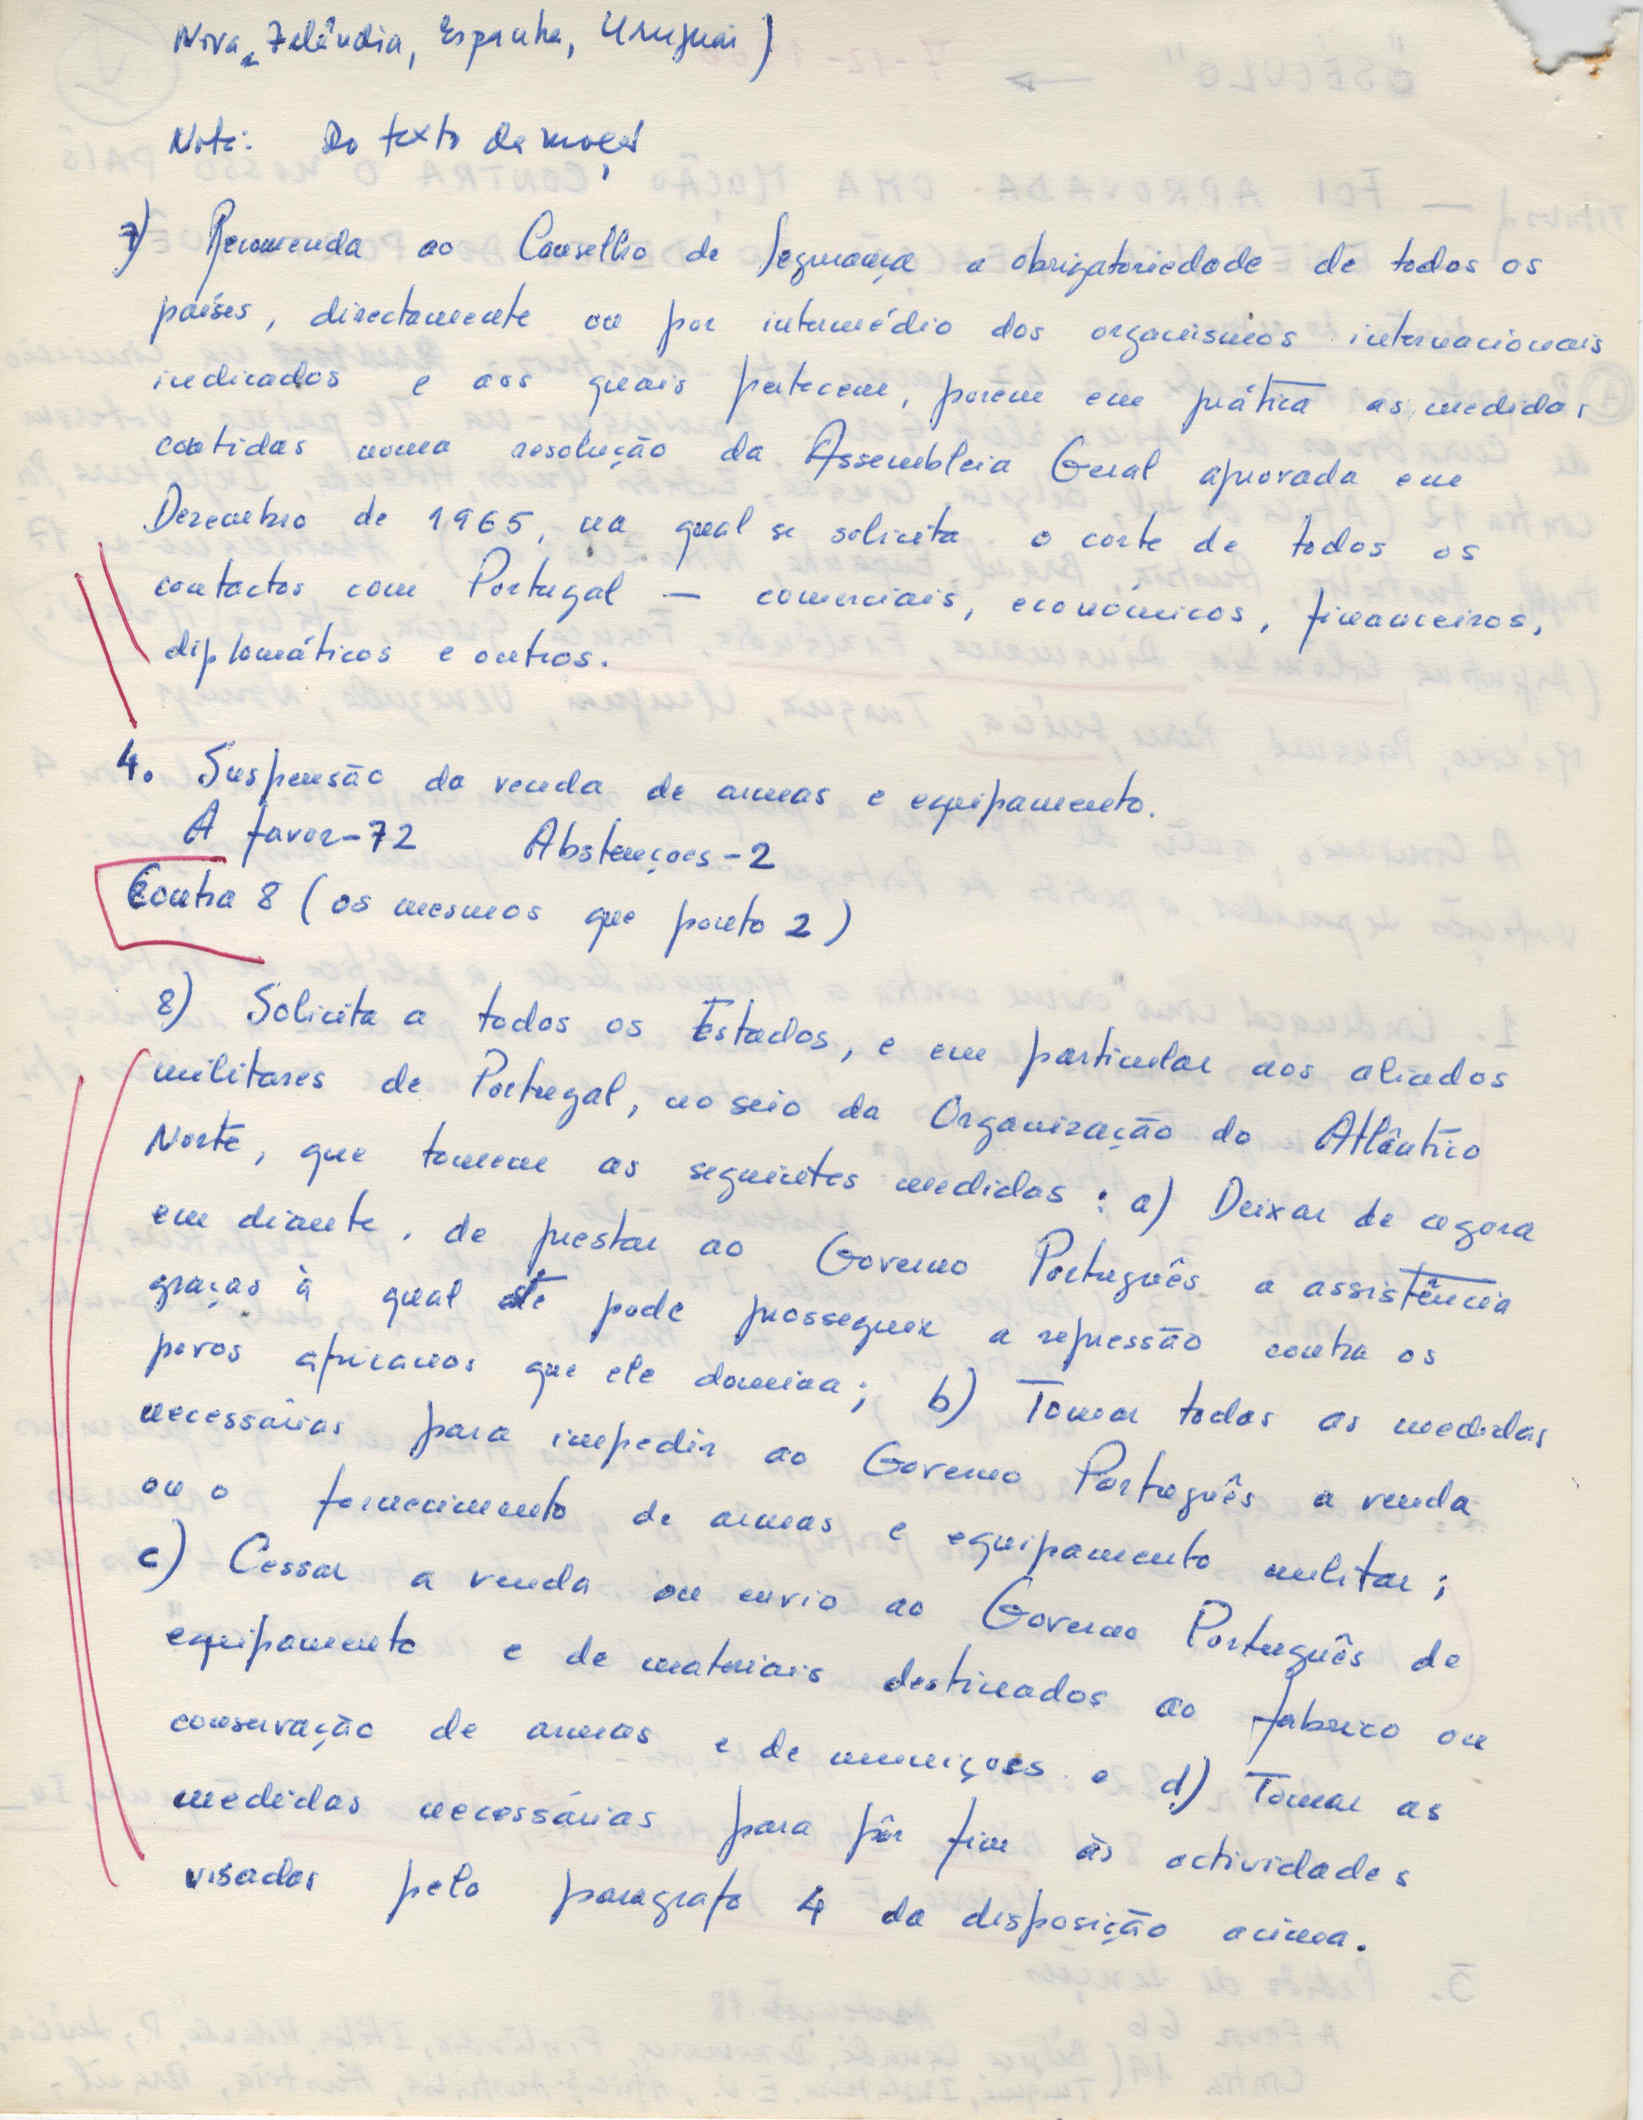 Nova Zelândia, Espanha, Uruguai)
Nota: Do texto da moção
7) Recomenda ao Conselho de Segurança a obrigatoriedade de todos os
países, directamente ou por intermédio dos organismos internacionais
indicados e aos quais pertecem, porem em prática as medidas
contidas numa resolução da Assembleia Geral aprovada em
Dezembro de 1965, na qual se solicita o corte de todos os
contactos com Portugal — comerciais, económicos, financeiros,
diplomáticos e outros.
4. Suspensão da venda de armas e equipamento.
A favor-72 Abstenções-2
Contra 8 (os mesmos que ponto 2)
8) Solicita a todos os Estados, e em particular aos aliados
militares de Portugal, no seio da Organização do Atlântico
Norte, que tomem as seguintes medidas: a) Deixar de agora
em diante, de prestar ao Governo Português a assistência
graças à qual este pode prosseguir a repressão contra os
povos africanos que ele domina; b) Tomar todas as medidas
necessárias para impedir ao Governo Português a venda
ou o fornecimento de armas e equipamento militar;
c) Cessar a venda ou envio ao Governo Português de
equipamento e de materiais destinados ao fabrico ou
conservação de armas e de munições e d) Tomar as
medidas necessárias para pôr fim às actividades
visadas pelo paragrafo 4 da disposição acima.